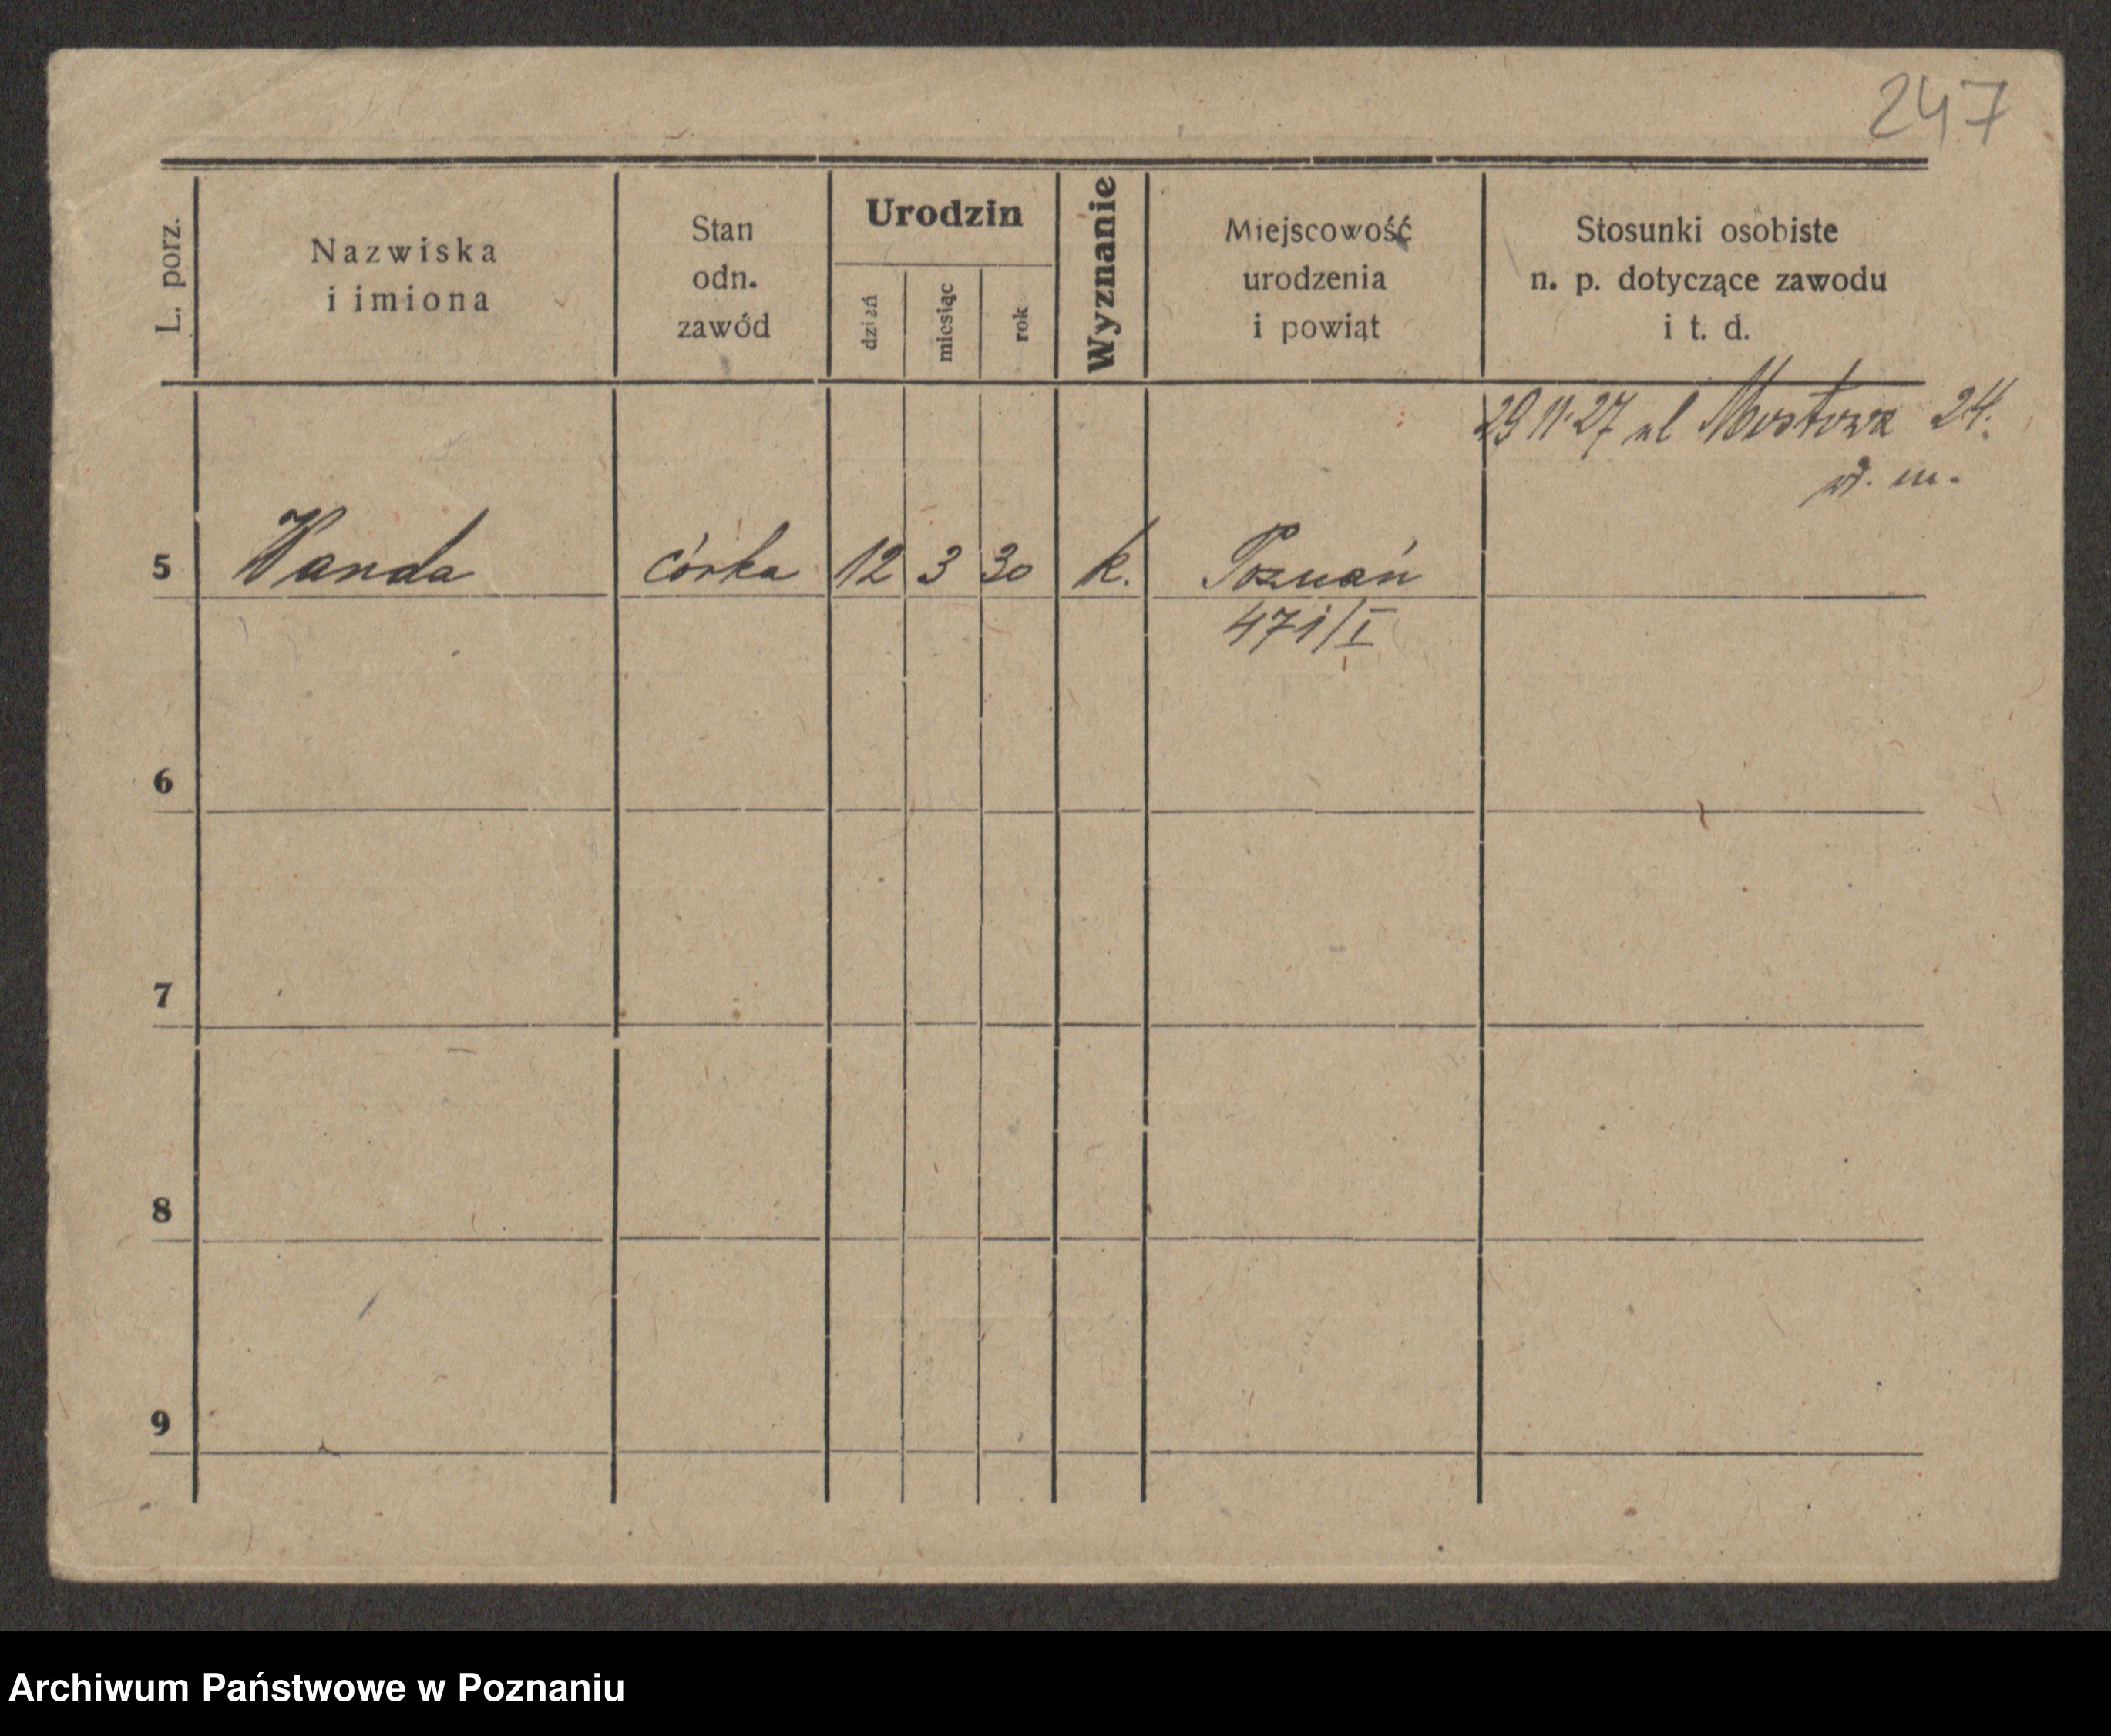 247
L. porz.
Nazwiska
i imiona
Stan
odn.
zawód
Urodzin
dzień
miesiąc
rok
Wyznanie
Miejscowość
urodzenia
i powiąt
Stosunki osobiste
n. p. dotyczące zawodu
i t. d.
29 11·27 ul Mostowa 24.
wł. m.
5 Wanda córka 12 3 30 k. Poznań
471/I
6
7
8
9
Archiwum Państwowe w Poznaniu